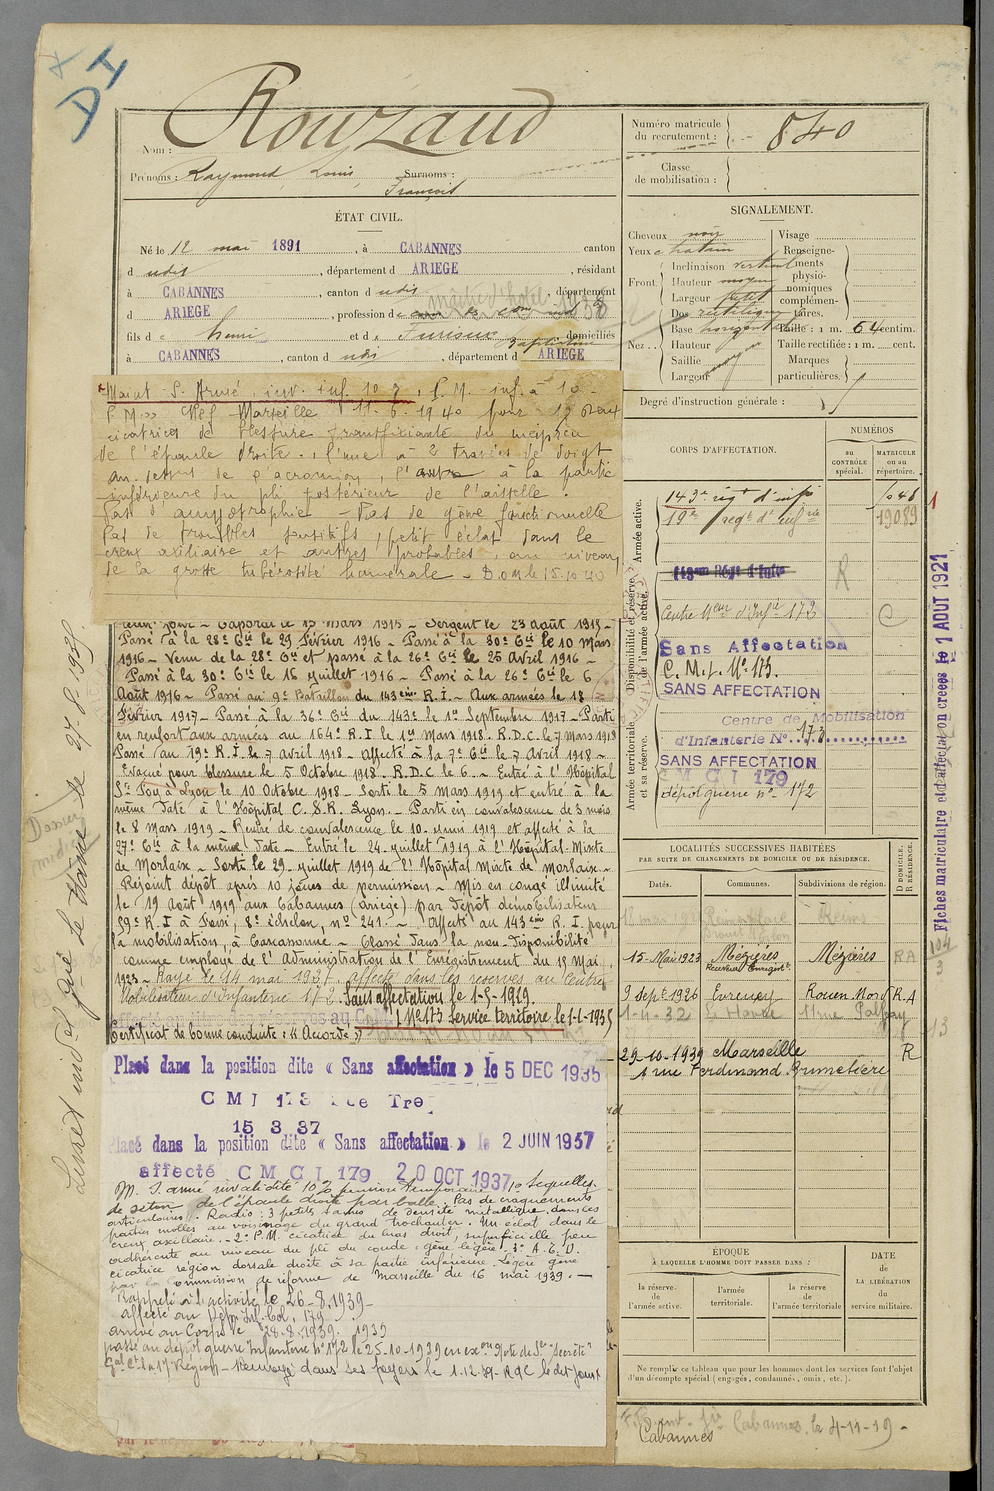 DI
Rouzaud
Nom :
Prénoms : Raymond Louis Surnoms :
François
Numéro matricule
du recrutement : 840
Classe
de mobilisation :
ÉTAT CIVIL.
Né le 12 mai 1891, à CABANNES canton
d udit, département d ARIEGE, résidant
à CABANNES, canton d udit, département
d ARIEGE, profession d
maître d'hôtel 1938
fils d e Henri et d e domiciliés
à CABANNES, canton d udit, département d ARIEGE
SIGNALEMENT.
Cheveux noir
Yeux chatain
Front. Inclinaison vertical
Hauteur moyen
Largeur petit
Nez... Dos rectiligne
Base horizontale
Hauteur
Saillie moyen
Largeur
Visage
Renseigne-
ments
physio-
nomiques
complémen-
taires.
Taille : 1 m. 64 centim.
Taille rectifiée : 1 m. cent.
Marques
particulières.
Degré d'instruction générale :
Maint. S. Armé, inv. inf. 10 %, P.M. inf. à 10 -
Marseille 11-6-1940 pour 1º Deux
cicatrices de blessure transfixiante du moignon
de l'épaule droite, l'une à 2 travers de doigt
au dessus de l'acromion, l'autre à la partie
inférieure du pli postérieur de l'aisselle.
Pas d'amyotrophie - Pas de gêne fonctionnelle
Pas de troubles , petit éclat dans le
creux axillaire et autres probables, au niveau
de la grosse tubérosité humérale - D.O.M le 15.10.40
Caporal le 15 Mars 1915 - Sergent le 23 août 1915 -
Passé à la 28e Cie le 29 Février 1916 - Passé à la 30e Cie le 10 Mars
1916 - Venu de la 28e Cie et passé à la 26e Cie le 25 Avril 1916 -
Passé à la 30e Cie le 16 juillet 1916 - Passé à la 26e Cie le 6
Août 1916 - Passé au 9e Bataillon du 143ème R.I. - Aux armées le 18
Février 1917 - Passé à la 36e Cie du 143e le 1er Septembre 1917 - Parti
en renfort aux armées au 164e R.I le 1er Mars 1918. R.D.C. le 7 Mars 1918
Passé au 19e R.I. le 7 Avril 1918 - Affecté à la 7e Cie le 7 Avril 1918 -
Evacué pour blessure le 5 Octobre 1918. R.D.C le 6 - Entré à l'Hôpital
St Foy à Lyon le 10 Octobre 1918 - Sorti le 5 Mars 1919 et entré à la
même date à l'Hôpital C.S.R. Lyon. - Parti en convalescence de 3 mois
le 8 Mars 1919 - Rentré de convalescence le 10 Juin 1919 et affecté à la
27e Cie à la même date - Entré le 24 juillet 1919 à l'Hôpital Mixte
de Morlaix - Sorti le 29 juillet 1919 de l'Hôpital Mixte de Morlaix -
Rejoint dépôt après 10 jours de permission - Mis en congé illimité
le 19 Août 1919 aux Cabannes (Ariège) par Dépôt démobilisateur
59e R.I à Foix, 8e échelon, nº 241. - Affecté au 143ème R.I. pour
la mobilisation, à Carcassonne - Classé dans la non-disponibilité
comme employé de l'Administration de l'Enregistrement du 15 Mai
1923 - Rayé le 14 mai 1927 affecté dans les réserves au Centre
Mobilisateur d'Infanterie 172. Sans affectation le 1-5-1929.
Nº 173 service territoire le 1-1-1935
Certificat de bonne conduite : « Accordé »
Placé dans la position dite « Sans affectation » le 5 DEC 1935
C M I 173
15 3 37
Placé dans la position dite « Sans affectation » le 2 JUIN 1937
affecté C M C I 179 20 OCT 1937
M. S. armé invalidité 10% pension temporaire 1º séquelles
de séton de l'épaule droite par balle. Pas de craquements
articulaires. Radio : 3 petits de densité métallique, dans les
parties molles au voisinage du grand trochanter. Un éclat dans le
creux axillaire. - 2º P.M. cicatrice du bras droit, superficielle peu
adhérente au niveau du pli du coude, gêne légère. 3º
cicatrice région dorsale droite à sa partie inférieure. Légère gêne
par la Commission de réforme de Marseille du 16 mai 1939. -
Rappelé à l'activité le 26-8-1939 -
affecté au Dépôt Inf. Col. 179
arrivé au Corps le 28.8.1939. 1939
passé au dépôt guerre Infanterie nº 172 le 25-10-1939 en ex. Note de Sce "Secrète"
Renvoyé dans ses foyers le 1.12.39 - RDC le dit jour
CORPS D'AFFECTATION.
NUMÉROS
au
CONTRÔLE
spécial.
MATRICULE
ou au
répertoire.
Armée active.
Disponibilité et réserve
de l'armée active.
Armée territoriale
et sa réserve.
143e régt d'infie 1048
19e régt d'infie 19089
143ème Régt d'Infie
R
Centre Mteur d'Infie 172 C
Sans Affectation
C. M. I. Nº 173.
SANS AFFECTATION
Centre de Mobilisation
d'Infanterie Nº 173
SANS AFFECTATION
C M C I 179
dépôt guerre nº 172
LOCALITÉS SUCCESSIVES HABITÉES
PAR SUITE DE CHANGEMENTS DE DOMICILE OU DE RÉSIDENCE.
Datés. Communes. Subdivisions de région.
D DOMICILE.
R RÉSIDENCE.
Reims
15 Mai 1923 Mézières Mézières RA
Receveur Enregist.
9 Septe 1926 Envermeu Rouen Nord R.A
1-4-32 Le Havre
29-10-1939 Marseille R
1 rue Ferdinand Brunetière
ÉPOQUE
À LAQUELLE L'HOMME DOIT PASSER DANS :
la réserve
de
l'armée active.
l'armée
territoriale.
la réserve
de
l'armée territoriale
DATE
de
LA LIBÉRATION
du
service militaire.
Ne remplir ce tableau que pour les hommes dont les services font l'objet
d'un décompte spécial (engagés, condamnés, omis, etc.).
Cabannes, le 4-11-19 -
Cabannes
Fiches matriculaire et d'affectation créées le 1 AOUT 1921
104
3
le Havre le 27-8-1935